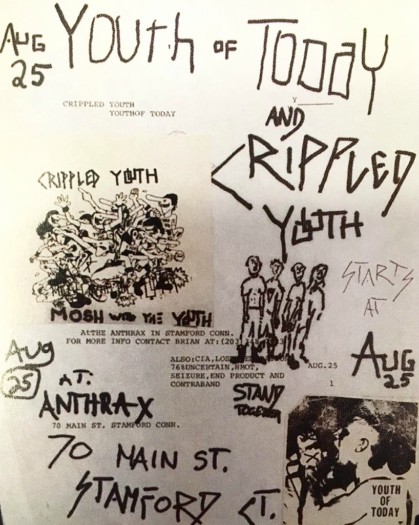 AUG
25
YOUTH OF TODAY
CRIPPLED YOUTH
YOUTHOF TODAY
AND
CRIPPLED
YOUTH
CRIPPLED YOUTH
MOSH WITH THE YOUTH
STARTS
AT
AtTHE ANTHRAX IN STAMFORD CONN.
FOR MORE INFO CONTACT BRIAN AT:(203)
ALSO:CIA,
76%UNCERTAIN,HMOT,
SEIZURE,END PRODUCT AND
CONTRABAND
AUG.25
1
AUG
25
AUG
25
AT.
ANTHRAX
70 MAIN ST. STAMFORD CONN.
STAND
TOGETHER
70 MAIN ST.
STAMFORD CT.
YOUTH
OF
TODAY